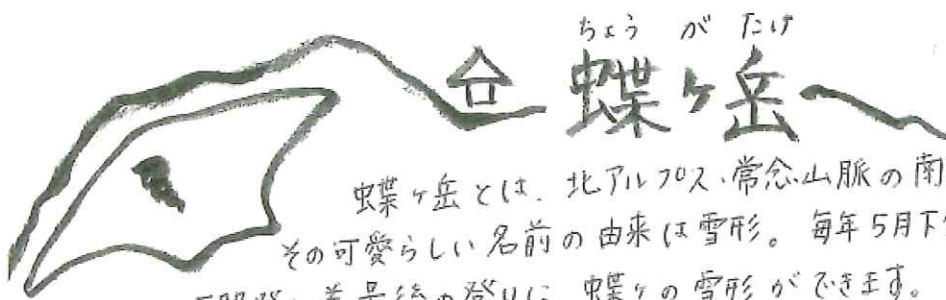 ちょう が たけ
蝶ヶ岳
蝶ヶ岳とは、北アルプス・常念山脈の南
その可愛らしい名前の由来は雪形。毎年5月下
最後の登りに、蝶々の雪形ができます。